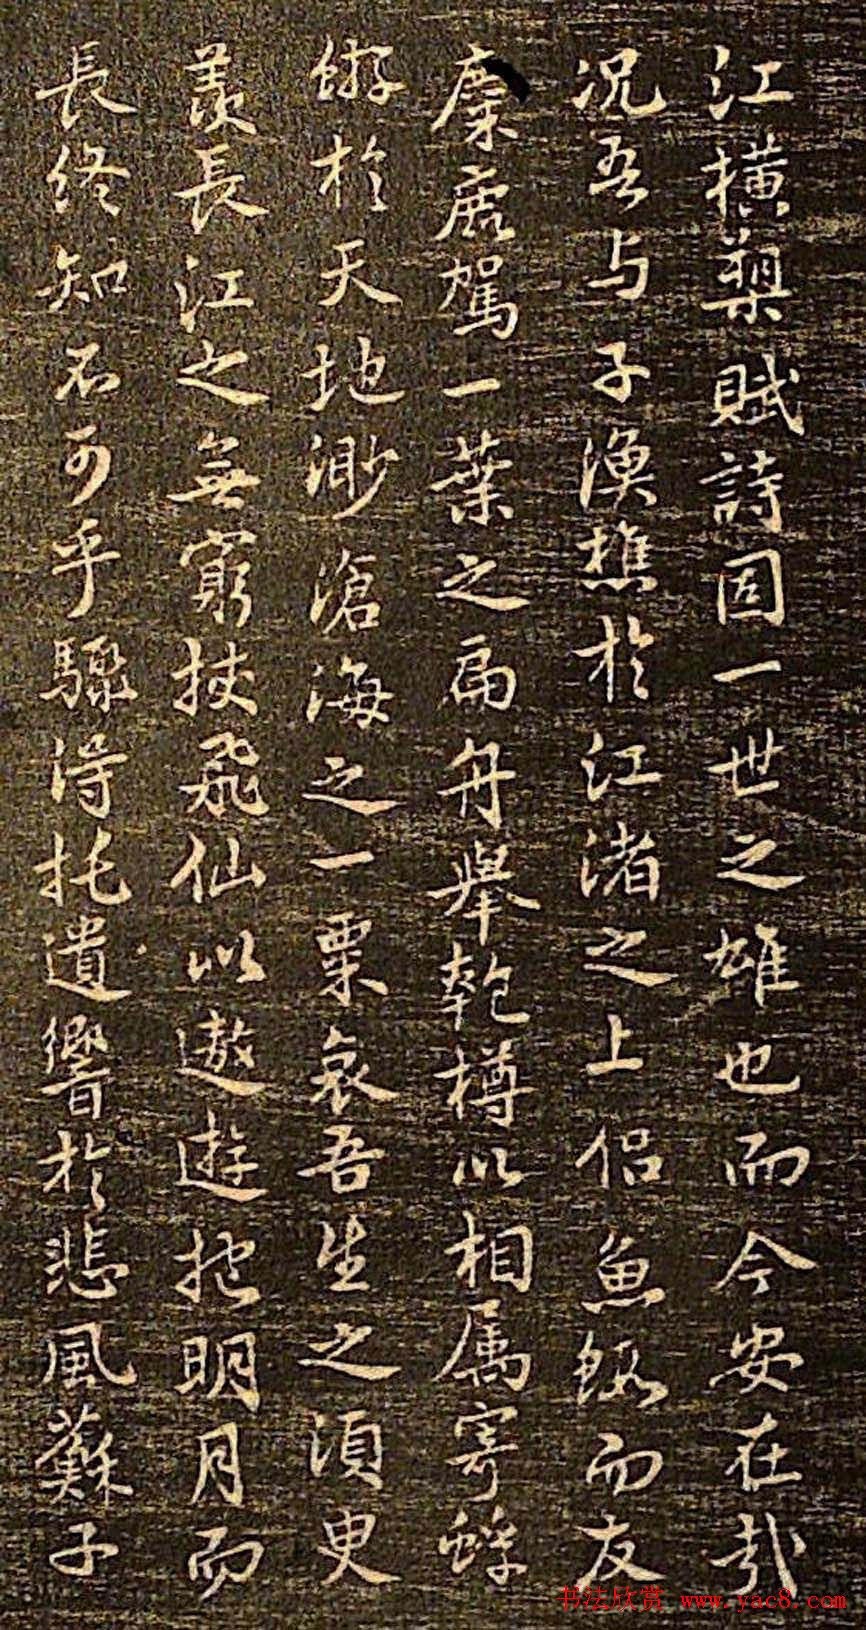 江橫槊賦詩固一世之雄也而今安在哉
況吾与子漁樵於江渚之上侣魚鰕而友
麋鹿駕一葉之扁舟舉匏樽以相属寄蜉
蝣於天地渺滄海之一粟哀吾生之須臾
羡長江之無窮挟飛仙以遨遊抱明月而
長終知不可乎驟得托遺響於悲風蘇子
书法欣赏 www.yac8.com